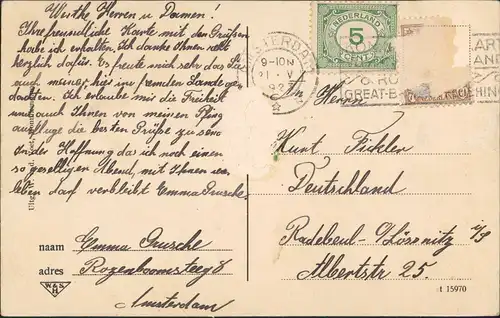 Werthe Herren u Damen!
Ihre freundliche Karte mit den Grüßen
habe ich erhalten. Ich danke Ihnen recht
herzlich dafür. Es freute mich sehr das Sie
auch meiner, hier im fremden Lande ge-
dachten. Ich erlaube mir die Freiheit
und auch Ihnen von meinem Pfing
ausfluge die besten Grüße zu sen
In der Hoffnung da ich noch einen
so geselligen Abend, mit Ihnen
leben darf verbleibt Emma Grusche.
naam Emma Grusche
adres Rozenboomsteeg 8
Amsterdam
W&S
AMSTERDAM
9-10
NEDERLAND
5
CENT
GREAT-B
An Herrn
Kurt Fickler
Deutschland
Radebeul-Lössnitz i/S
Albertstr 25.
t 15970